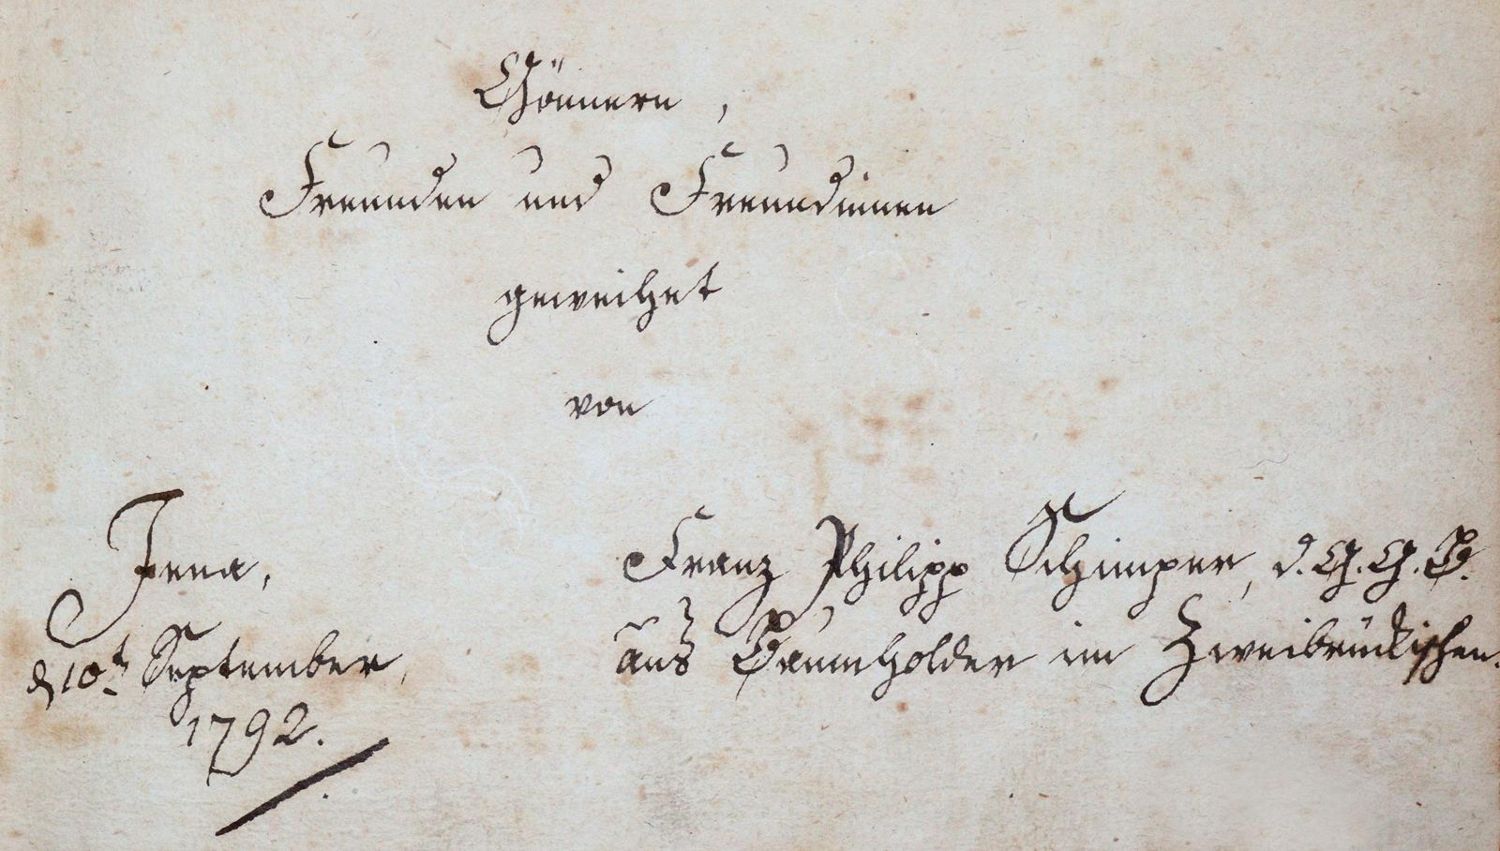 Gönnern,
Freunden und Freundinnen
geweihet
von
Jena,
d 10t September,
1792.
Franz Philipp Schimper, d. G. G. B.
aus Baumholder im Zweibrückischen.